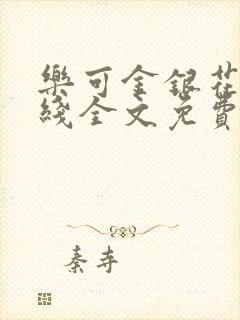 樂可金銀花
綫全文免費
秦寺